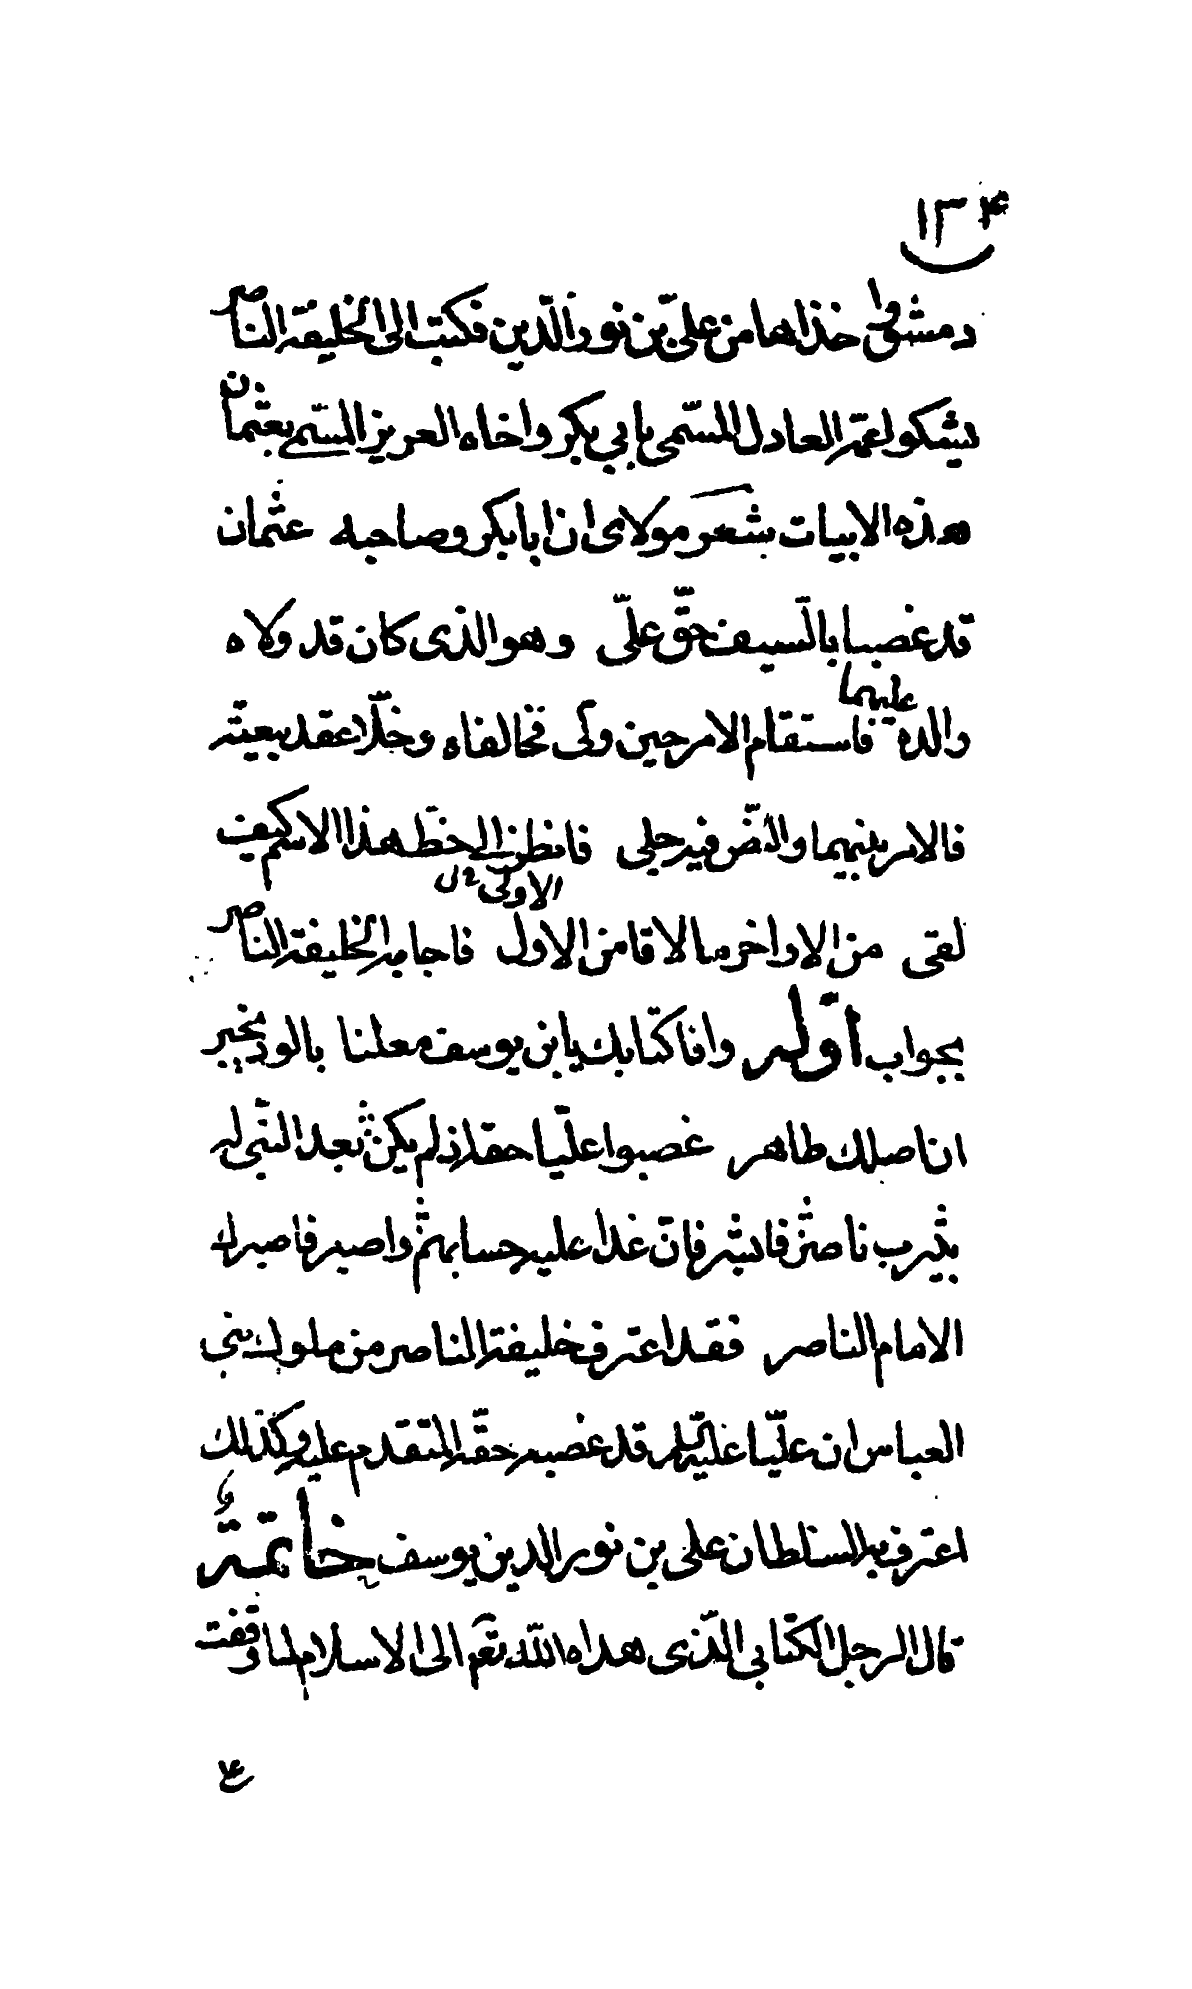 ١٣۴
دمشق واخذاها من علىّ بن نور الدّين فكتب الى الخليفة الناصر
يشكو اعمّه العادل المسّمى بابي بكر واخاه العزيز المسّمے بعثمان
هذه الابيات شعر مولاى ان ابابكر وصاحبه عثمان
قد غصبا بالسّيف حقّ علىّ وهو الذى كان قد ولاه
والده فاستقام الامر حين ولى فخالفاه وحلّا عقد بيعته
عليهما
فالامر بينهما والنّصّ فيه جلى فانظر الے حظ هذا الاسم كيف
لقى من الاواخر ما لاقا من الاول فاجابه الخليفة الناصر
الاولى
بجواب اوّله وافا كتابك يا بن يوسف معلنا بالود يخبر
ان اصلك طاهر غصبوا عليّا حقه اذ لم يكن بعد النّبى له
بيثرب ناصر فابشر فانّ غدا عليه حسابهم واصبر فناصرك
الامام الناصر فقد اعترف خليفة الناصر من ملوك بنى
العباس ان عليّا عليه السلم قد غصب حقه المتقدم عليه وكذلك
اعترف به السلطان على بن نور الدين يوسف خاتمة
قال الرجل الكتابي الّذى هداه اللّه تعم الى الاسلام لما وقفت